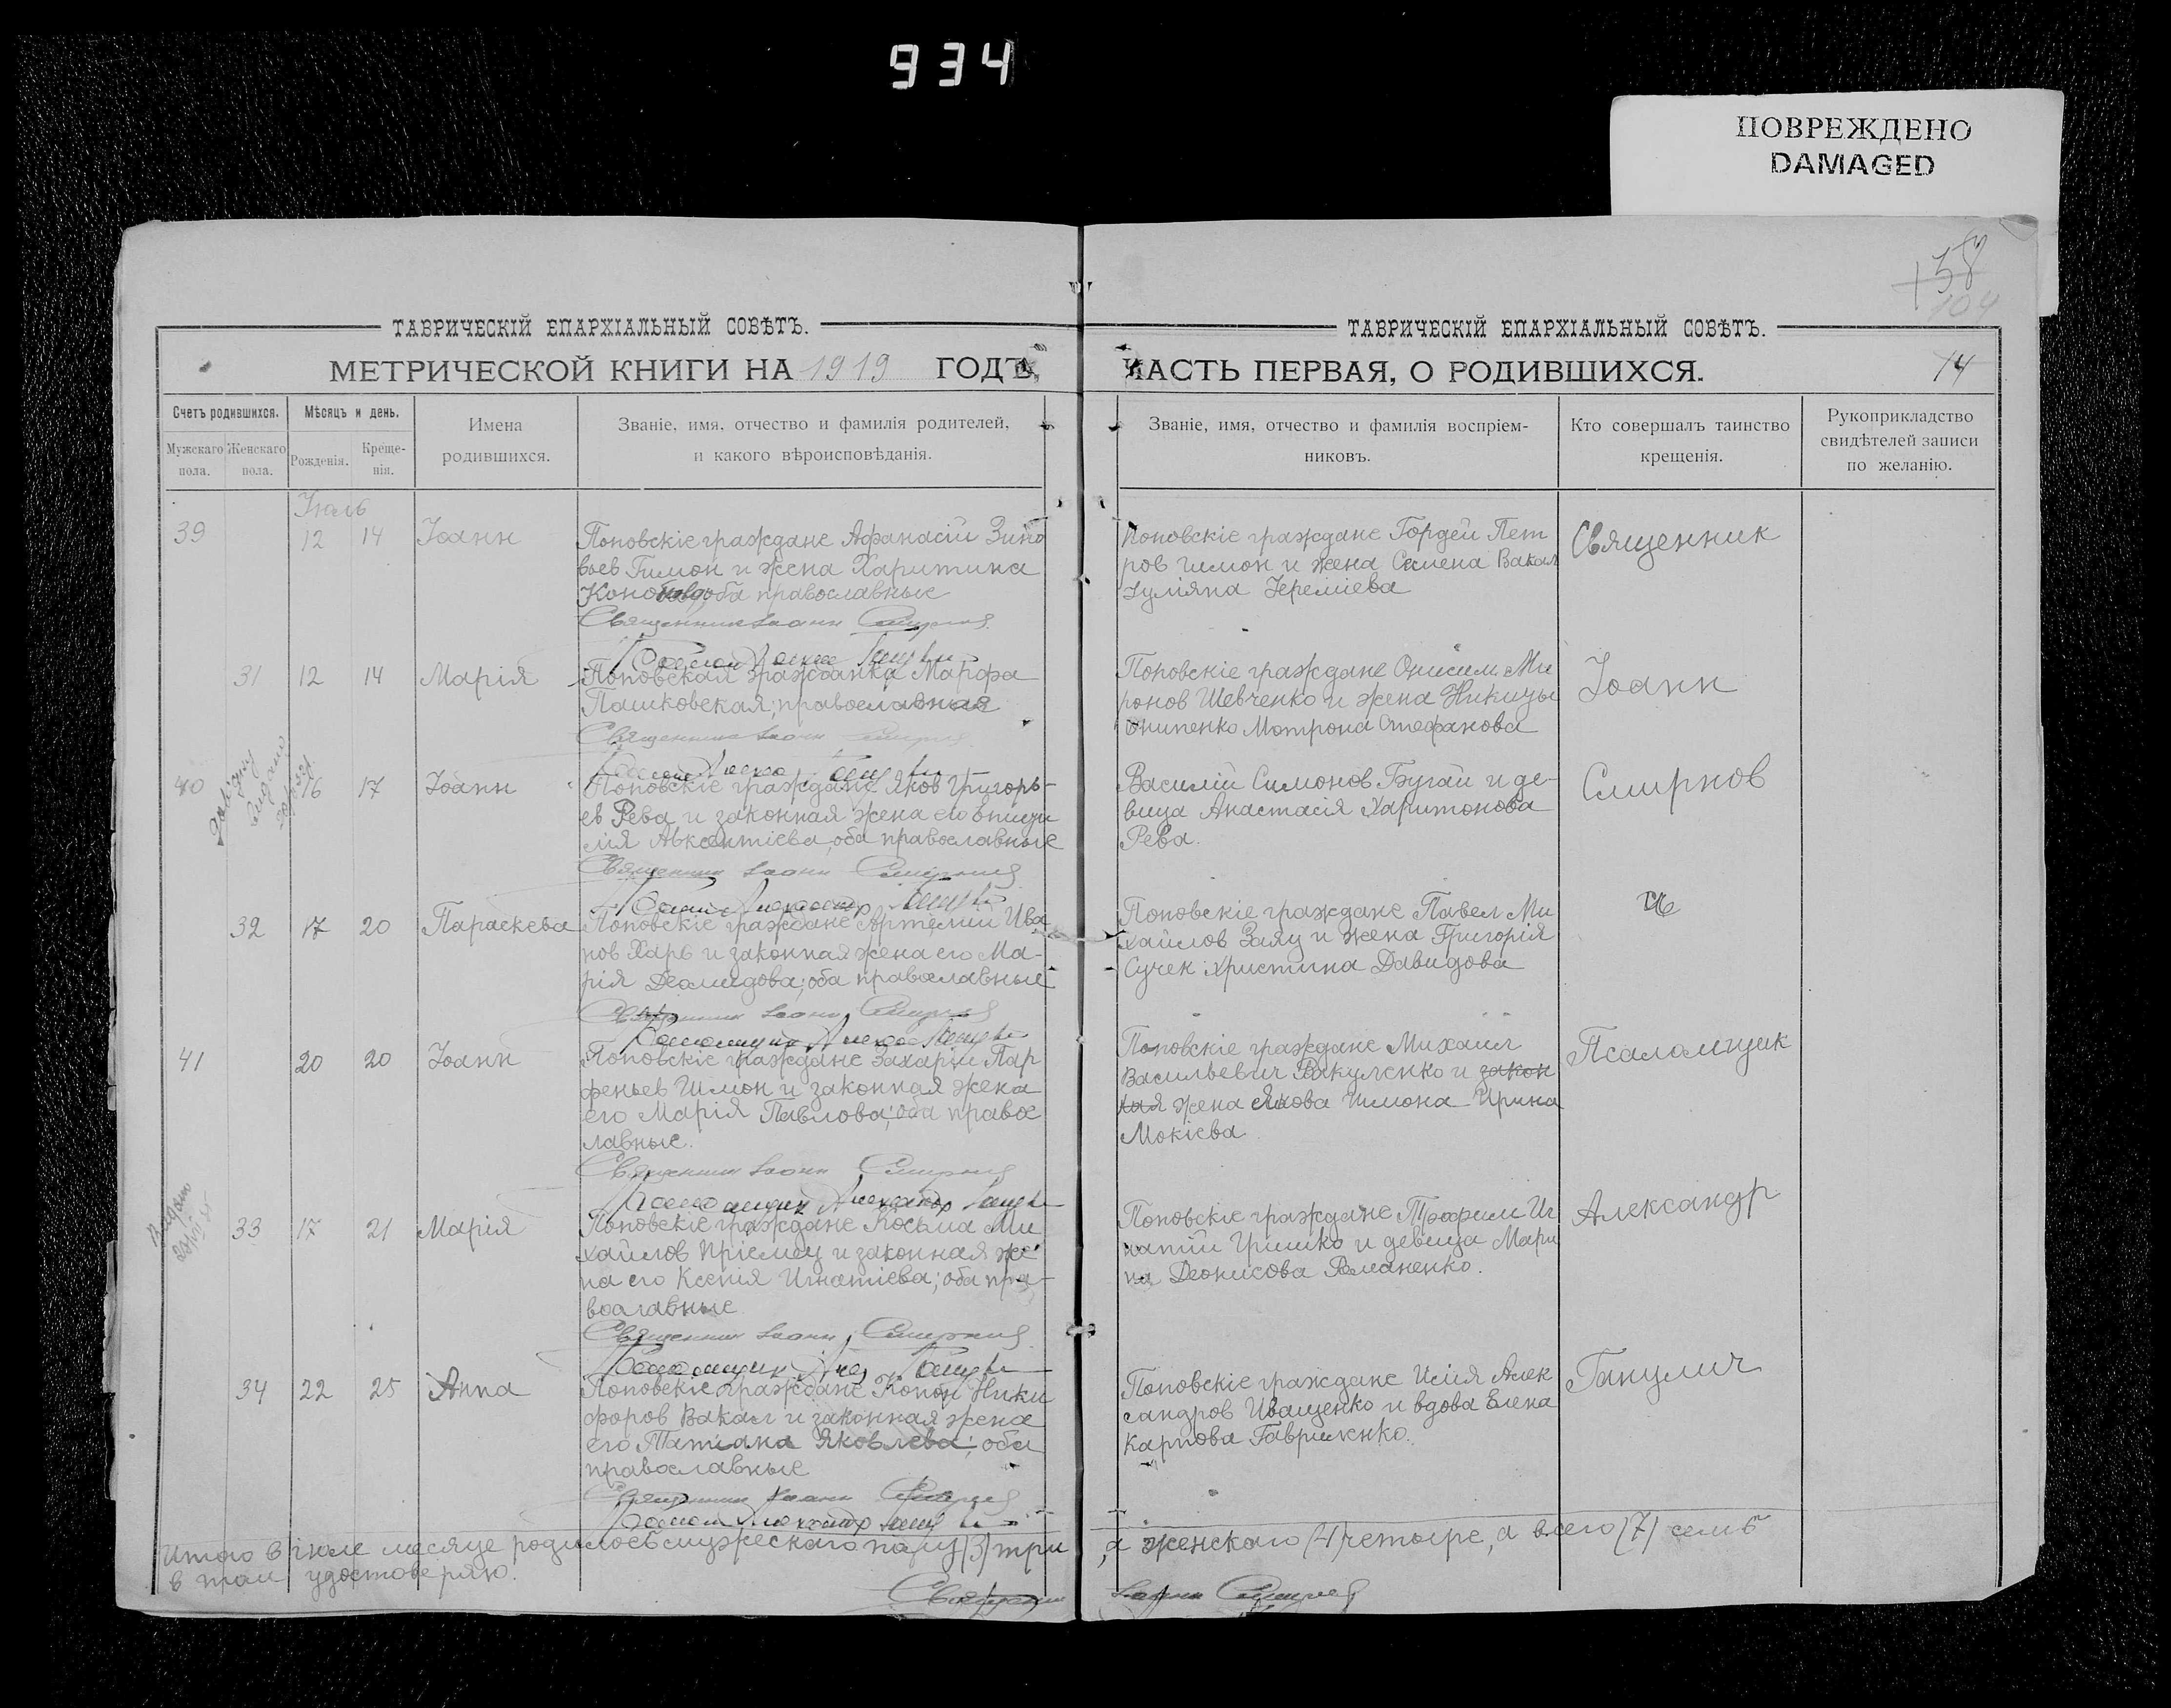 934
ПОВРЕЖДЕНО
DAMAGED
58
104
ТАВРИЧЕСКІЙ ЕПАРХІАЛЬНЫЙ СОВѢТЪ.
МЕТРИЧЕСКОЙ КНИГИ НА 1919 ГОДЪ,
Счетъ родившихся.
Мужскаго пола.
Женскаго пола.
Мѣсяцъ и день.
Рожденія.
Креще-
нія.
Имена
родившихся.
Званіе, имя, отчество и фамилія родителей,
и какого вѣроисповѣданія.
ТАВРИЧЕСКІЙ ЕПАРХІАЛЬНЫЙ СОВѢТЪ.
ЧАСТЬ ПЕРВАЯ, О РОДИВШИХСЯ.
14
Званіе, имя, отчество и фамилія воспріем-
никовъ.
Кто совершалъ таинство
крещенія.
Рукоприкладство
свидѣтелей записи
по желанію.
Июль
39 12 14 Іоанн
Поповскіе граждане Афанасій Зино
вьев Гимон и жена Харитина
оба православные
Священник Іоанн Смирнов
Поповскіе граждане Гордей Пет
ров Шмон и жена Семена Вакал
Іереміева
Священник
31 12 14 Марія
Поповская гражданка Марфа
Пашковская; православная
Священник Іоанн Смирнов
Поповскіе граждане Онисим Ми
ронов Шевченко и жена Никиты
Онипенко Мотрона Стефанова
Іоанн
40 16 17 Іоанн
Поповскіе граждане Яков Григорь-
ев Рева и законная жена его Епис
Авксентіева, оба православные
Священник Іоанн Смирнов
Василій Симонов Бугай и де-
вица Анастасія Харитонова
Рева.
Смирнов
32 17 20 Параскева
Поповскіе граждане Артемій Ива
нов Харь и законная жена его Ма-
рія Деомидова; оба православные
Священник Іоанн Смирнов
Поповскіе граждане Павел Ми
хайлов Заяц и жена Григорія
Сучек Христина Давидова
с
41 20 20 Іоанн
Поповскіе граждане Захарій Пар
феньев Шмон и законная жена
его Марія Павлова; оба правос
лавные.
Священник Іоанн Смирнов
Псаломщик Александр
Поповскіе граждане Михаил
Васильевич Вакуленко и закон
ная жена Якова Шмона Ирина
Мокіева
Псаломщик
33 17 21 Марія
Поповскіе граждане Косьма Ми
хайлов Пріемец и законная же
на его Ксенія Игнатіева; оба пра-
вославные
Священник Іоанн Смирнов
Поповскіе граждане Трофим Иг
натій Гришко и девица Мари
на Деонисова Романенко.
Александр
34 22 25 Анна
Поповскіе граждане Конон Ники
форов Вакал и законная жена
его Татіана Яковлева; оба
православные
Священник Іоанн Смирнов
Поповскіе граждане Илія Алек
сандров Иващенко и вдова Елена
Карпова Гавриленко.
Ганулич
Итого в июле месяце родилось мужескаго полу (3) три, а женскаго (4) четыре, а всего (7) семь
в том удостоверяю.
Священник Іоанн Смирнов